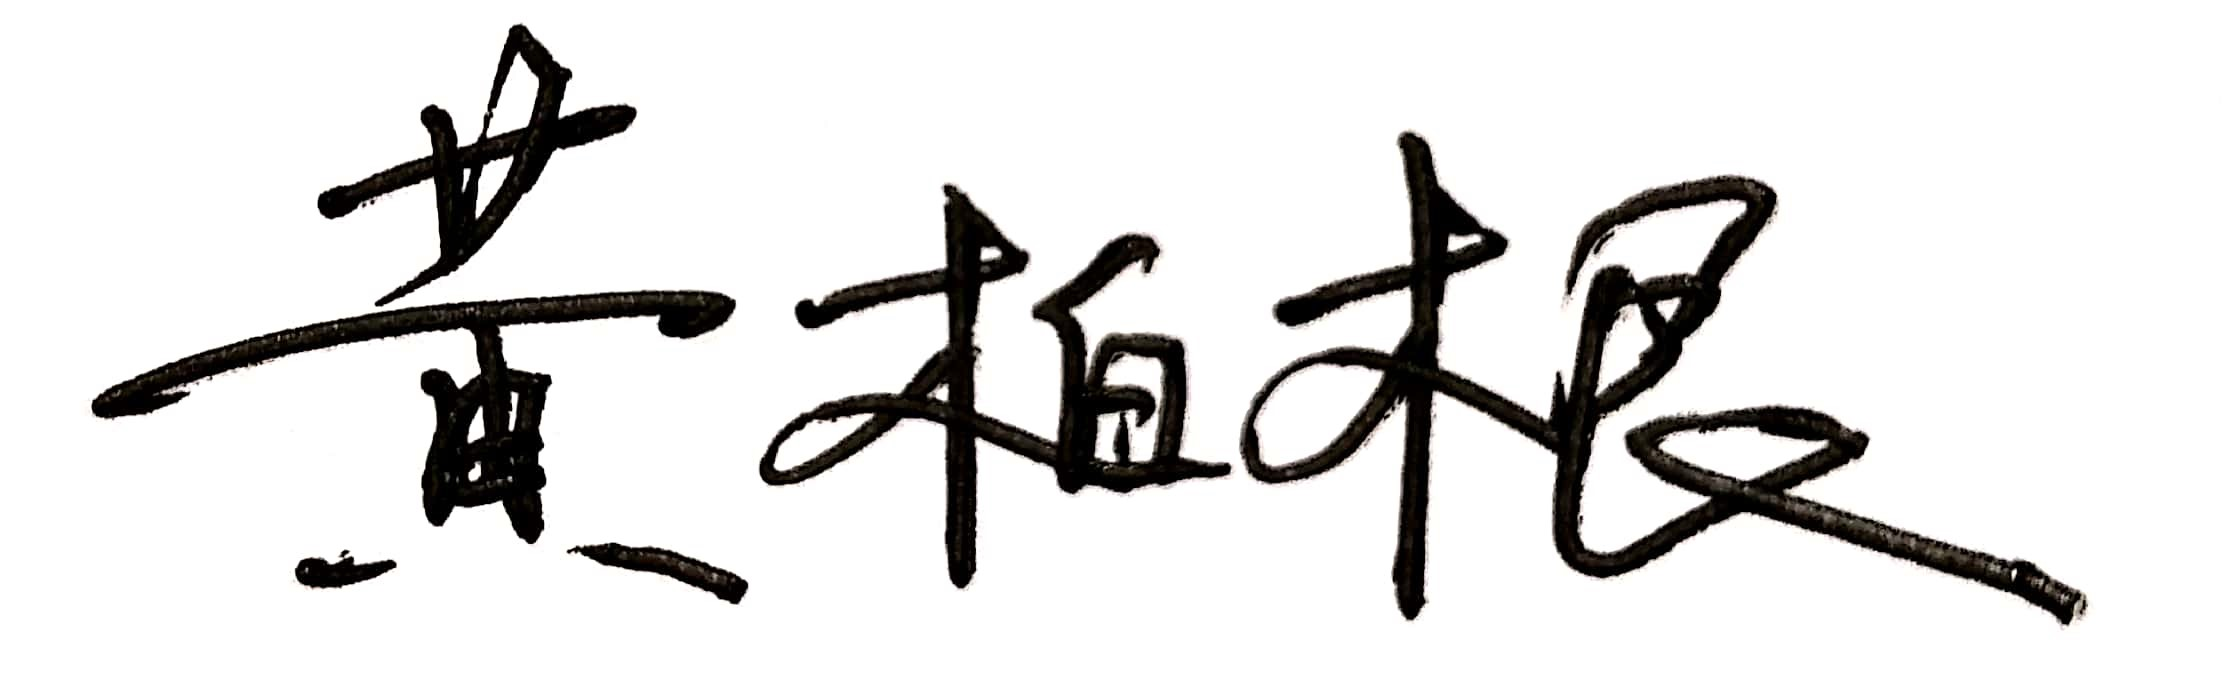 黄植根